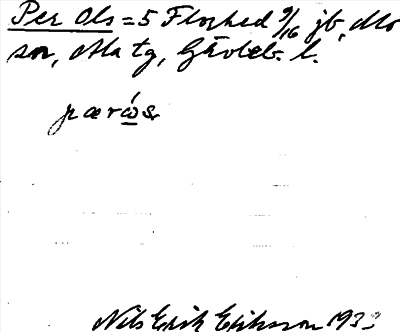 Per Ols = 5 Florhed 9/16 jb, Mo
son, Ma tg, Gävleb. l.
pærὼs.
Nils Erik Eliksson 193